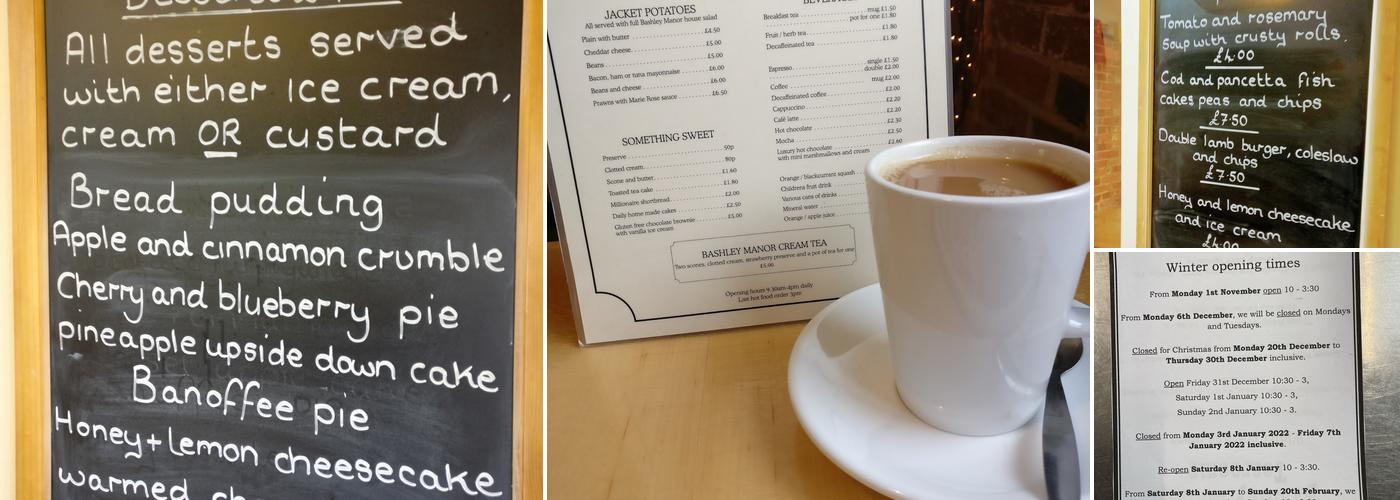 All desserts served
with either ice cream,
cream OR custard
Bread pudding
Apple and cinnamon crumble
Cherry and blueberry pie
pineapple upside down cake
Banoffee pie
Honey + lemon cheesecake
warmed
JACKET POTATOES
All served with full Bashley Manor house salad
Plain with butter £4.50
Cheddar cheese £5.00
Beans £5.00
Bacon, ham or tuna mayonnaise £6.00
Beans and cheese £6.00
Prawns with Marie Rose sauce £6.50
SOMETHING SWEET
Preserve 50p
Clotted cream 80p
Scone and butter £1.60
Toasted tea cake £1.80
Millionaire shortbread £2.00
Daily home made cakes £2.50
Gluten free chocolate brownie £5.00
with vanilla ice cream
Breakfast tea mug £1.50
pot for one £1.80
Fruit / herb tea £1.80
Decaffeinated tea £1.80
Espresso single £1.50
double £2.00
Coffee mug £2.00
Decaffeinated coffee £2.00
Cappuccino £2.20
Café latte £2.20
Hot chocolate £2.30
Mocha £2.50
Luxury hot chocolate £2.60
with mini marshmallows and cream
Orange / blackcurrant squash
Childrens fruit drink
Various cans of drinks
Mineral water
Orange / apple juice
BASHLEY MANOR CREAM TEA
Two scones, clotted cream, strawberry preserve and a pot of tea for one
£5.00
Opening hours 9.30am-4pm daily
Last hot food order 3pm
Tomato and rosemary
Soup with crusty rolls.
£4.00
Cod and pancetta fish
cakes peas and chips
£7.50
Double lamb burger, coleslaw
and chips
£7.50
Honey and lemon cheesecake
and ice cream
£4.00
Winter opening times
From Monday 1st November open 10 - 3:30
From Monday 6th December, we will be closed on Mondays
and Tuesdays.
Closed for Christmas from Monday 20th December to
Thursday 30th December inclusive.
Open Friday 31st December 10:30 - 3,
Saturday 1st January 10:30 - 3,
Sunday 2nd January 10:30 - 3.
Closed from Monday 3rd January 2022 - Friday 7th
January 2022 inclusive.
Re-open Saturday 8th January 10 - 3:30.
From Saturday 8th January to Sunday 20th February, we